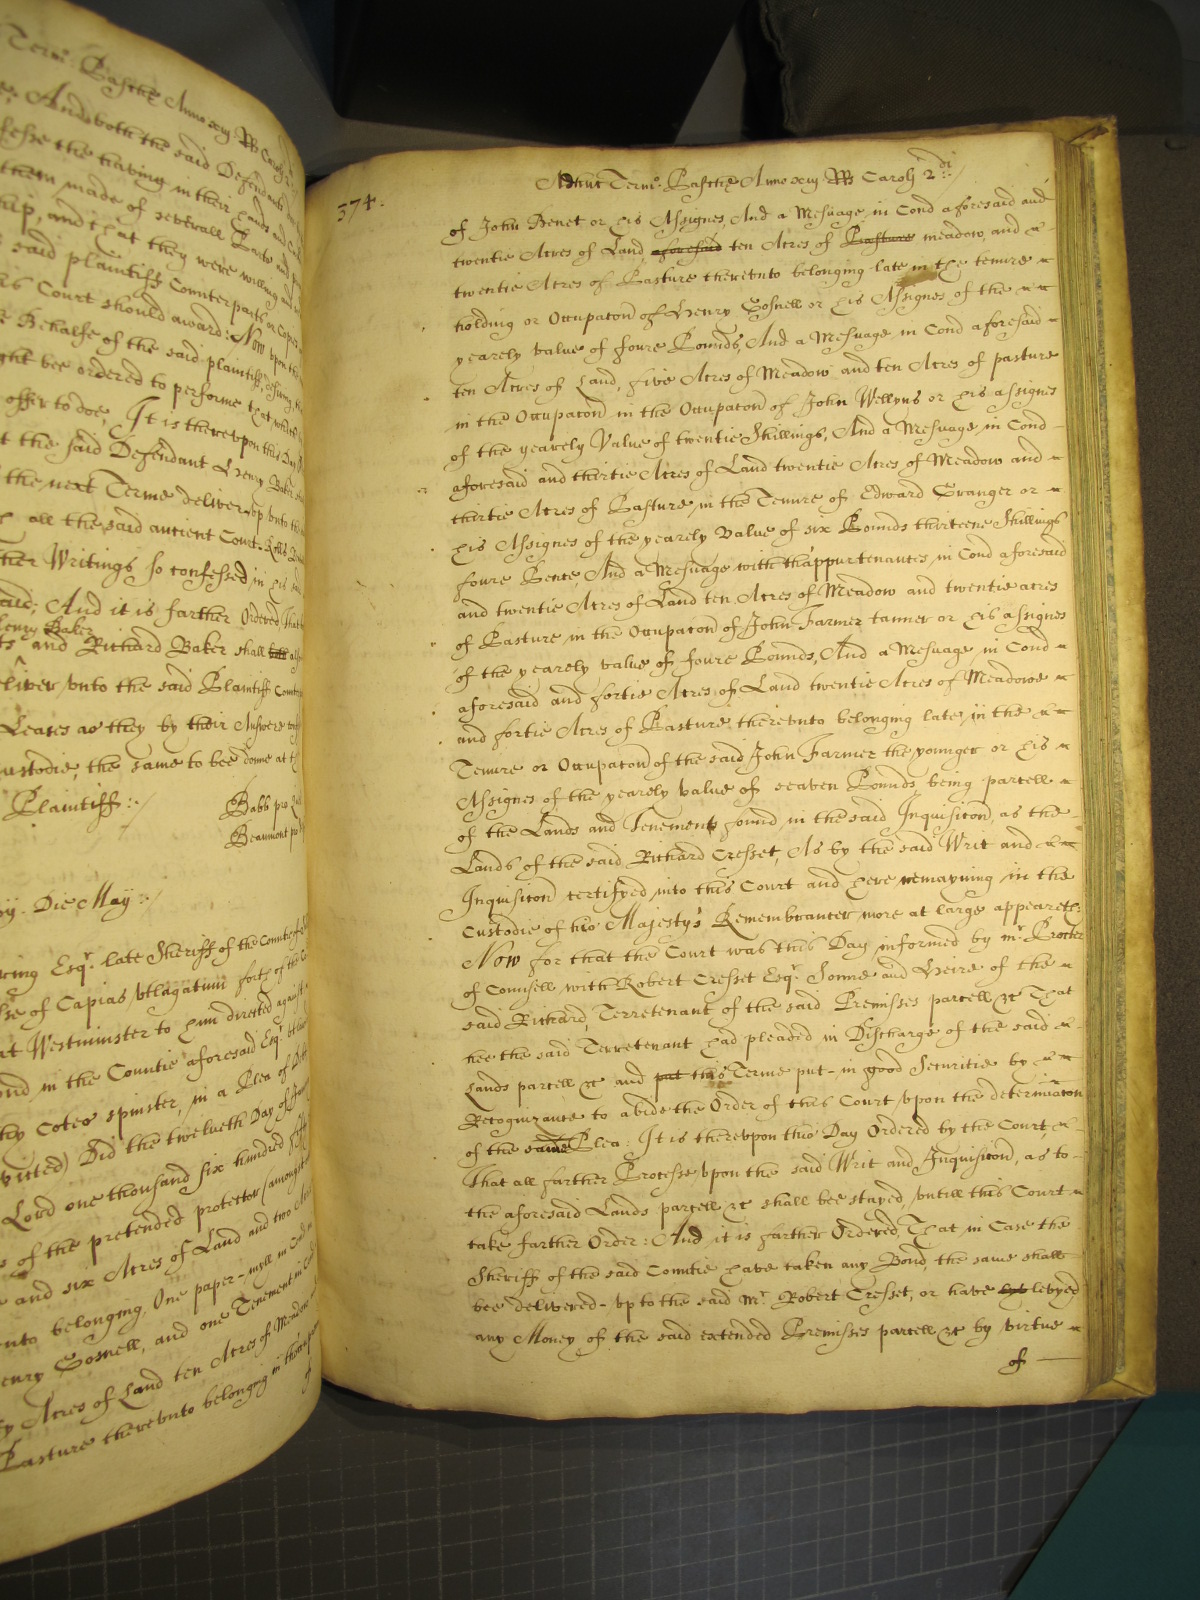 Term: Pasche Anno xiij RR Caroli
And both the said Defendants
the having in their hands and
them made of severall Courts and
and that they were willing and
said plaintiffs Counterparts or Copies
Court should award: Now upon the
Behalfe of the said plaintiffs,
bee ordered to performe that
offer to doe, It is thereupon this Day
the said Defendant Henry Baker
the next Terme deliver up vnto the
all the said ancient Court Rolls
Writings so confessed in his
And it is farther Ordered that
Henry Baker
and Richard Baker shall
deliver vnto the said Plaintiff
Leases as they by their Answere
Custodie, the same to bee donne at the
Plaintiff
Babb pro
Beaumont pro
Die May
Esqr. late Sheriff of the Countie
of Capias vtlagatum forth of the
at Westminster to him directed against
in the Countie aforesaid Esqr.
Cotes spinster, in a Plea of
Did the twelueth Day of
Lord one thousand six hundred
of the pretended protector (amongst
and six Acres of Land and two
belonging, One paper-myll in Cond
Henry Gosnell, and one Tenement in
Acres of Land ten Acres of Meadow
Pasture therevnto belonging in the
of
374.
Adhuc Term: Pasche Anno xiij RR Caroli 2di
of John Benet or his Assignes, And a Mesuage, in Cond aforesaid and
twentie Acres of Land, aforesaid ten Acres of Pasture meadow, and
twentie Acres of Pasture therevnto belonging late in the tenure
holding or Occupacon of Henry Gosnell or his Assignes of the
yearely value of foure Pounds, And a Mesuage in Cond aforesaid
ten Acres of Land, five Acres of Meadow and ten Acres of pasture
in the Occupacon in the Occupacon of John Wellyns or his assignes
of the yearely Value of twentie Shillings, And a Mesuage, in Cond
aforesaid and thirtie Acres of Land twentie Acres of Meadow and
thirtie Acres of Pasture, in the Tenure of Edward Granger or
his Assignes of the yearely value of six Pounds thirteene Shillings
foure Pence, And a Mesuage with thappurtenances, in Cond aforesaid
and twentie Acres of Land ten Acres of Meadow and twentie acres
of Pasture, in the Occupacon of John Farmer tanner or his assignes
of the yearely value of foure Pounds, And a Mesuage in Cond
aforesaid and fortie Acres of Land twentie Acres of Meadowe
and fortie Acres of Pasture therevnto belonging late, in the
Tenure or Occupacon of the said John Farmer the younger or his
Assignes of the yearely value of seaven Pounds, being parcell
of the Lands and Tenements found, in the said Inquisicon, as the
Lands of the said Richard Cresset, As by the said Writ and
Inquisicon certifyed into this Court and here remayning in the
Custodie of his Majesty's Remembrancer more at large appeareth:
Now for that the Court was this Day informed by mr. Procter
of Counsell with Robert Cresset Esqr. Sonne and Heire of the
said Richard, Terretenant of the said Premisses parcell &c That
hee the said Terretenant had pleaded in Discharge of the said
Lands parcell &c and put this Terme put in good Securitie by
Recognizance to abide the Order of this Court vpon the determinacon
of the same Plea: It is therevpon this Day Ordered by the Court,
That all farther Processe vpon the said Writ and Inquisicon, as to
the aforesaid Lands parcell &c shall bee stayed, vntill this Court
take farther Order: And it is farther Ordered, That in Case the
Sheriff of the said Countie have taken any Bond, the same shall
bee delivered vp to the said Mr. Robert Cresset, or have levyed
any Money of the said extended Premisses parcell &c by virtue
of